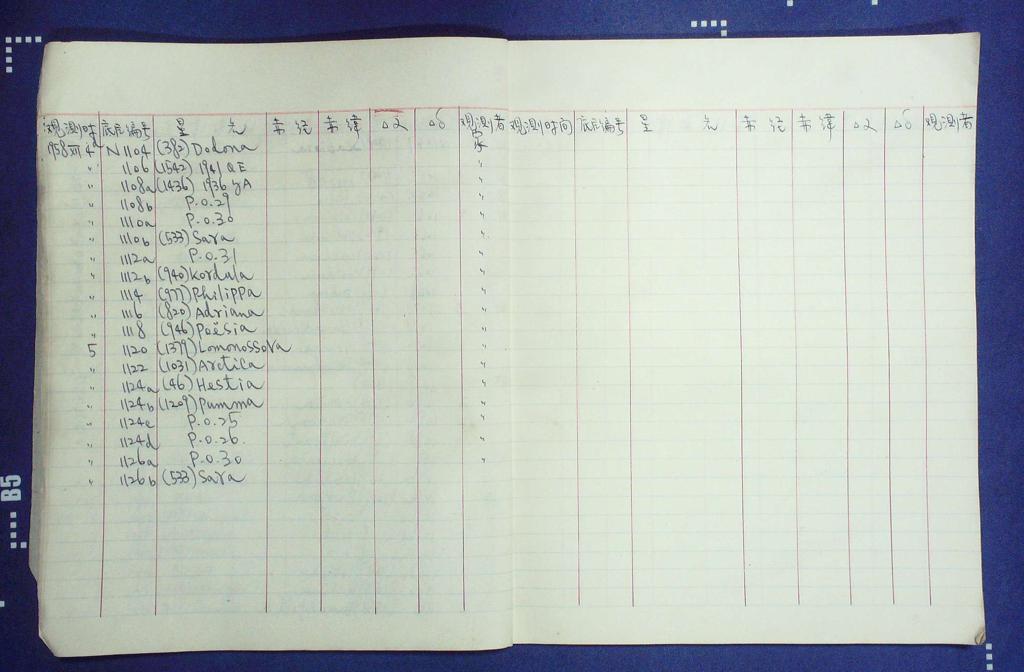 观测时 底片编号 星 名 赤经 赤纬 Δα Δδ 观测者 观测时间 底片编号 星 名 赤经 赤纬 Δα Δδ 观测者
1958 XII 4d N1104 (382) Dodona
" 1106 (1542) 1941 QE "
" 1108a (1436) 1936 YA "
" 1108b P.O.29 "
" 1110a P.O.30 "
" 1110b (533) Sara "
" 1112a P.O.31 "
" 1112b (940) Kordula "
" 1114 (977) Philippa "
" 1116 (820) Adriana "
" 1118 (946) Poësia "
5 1120 (1379) Lomonossova "
" 1122 (1031) Arctica "
" 1124a (46) Hestia "
" 1124b (1209) Pumma "
" 1124c P.O.25 "
" 1124d P.O.26. "
" 1126a P.O.30 "
" 1126b (533) Sara
B5